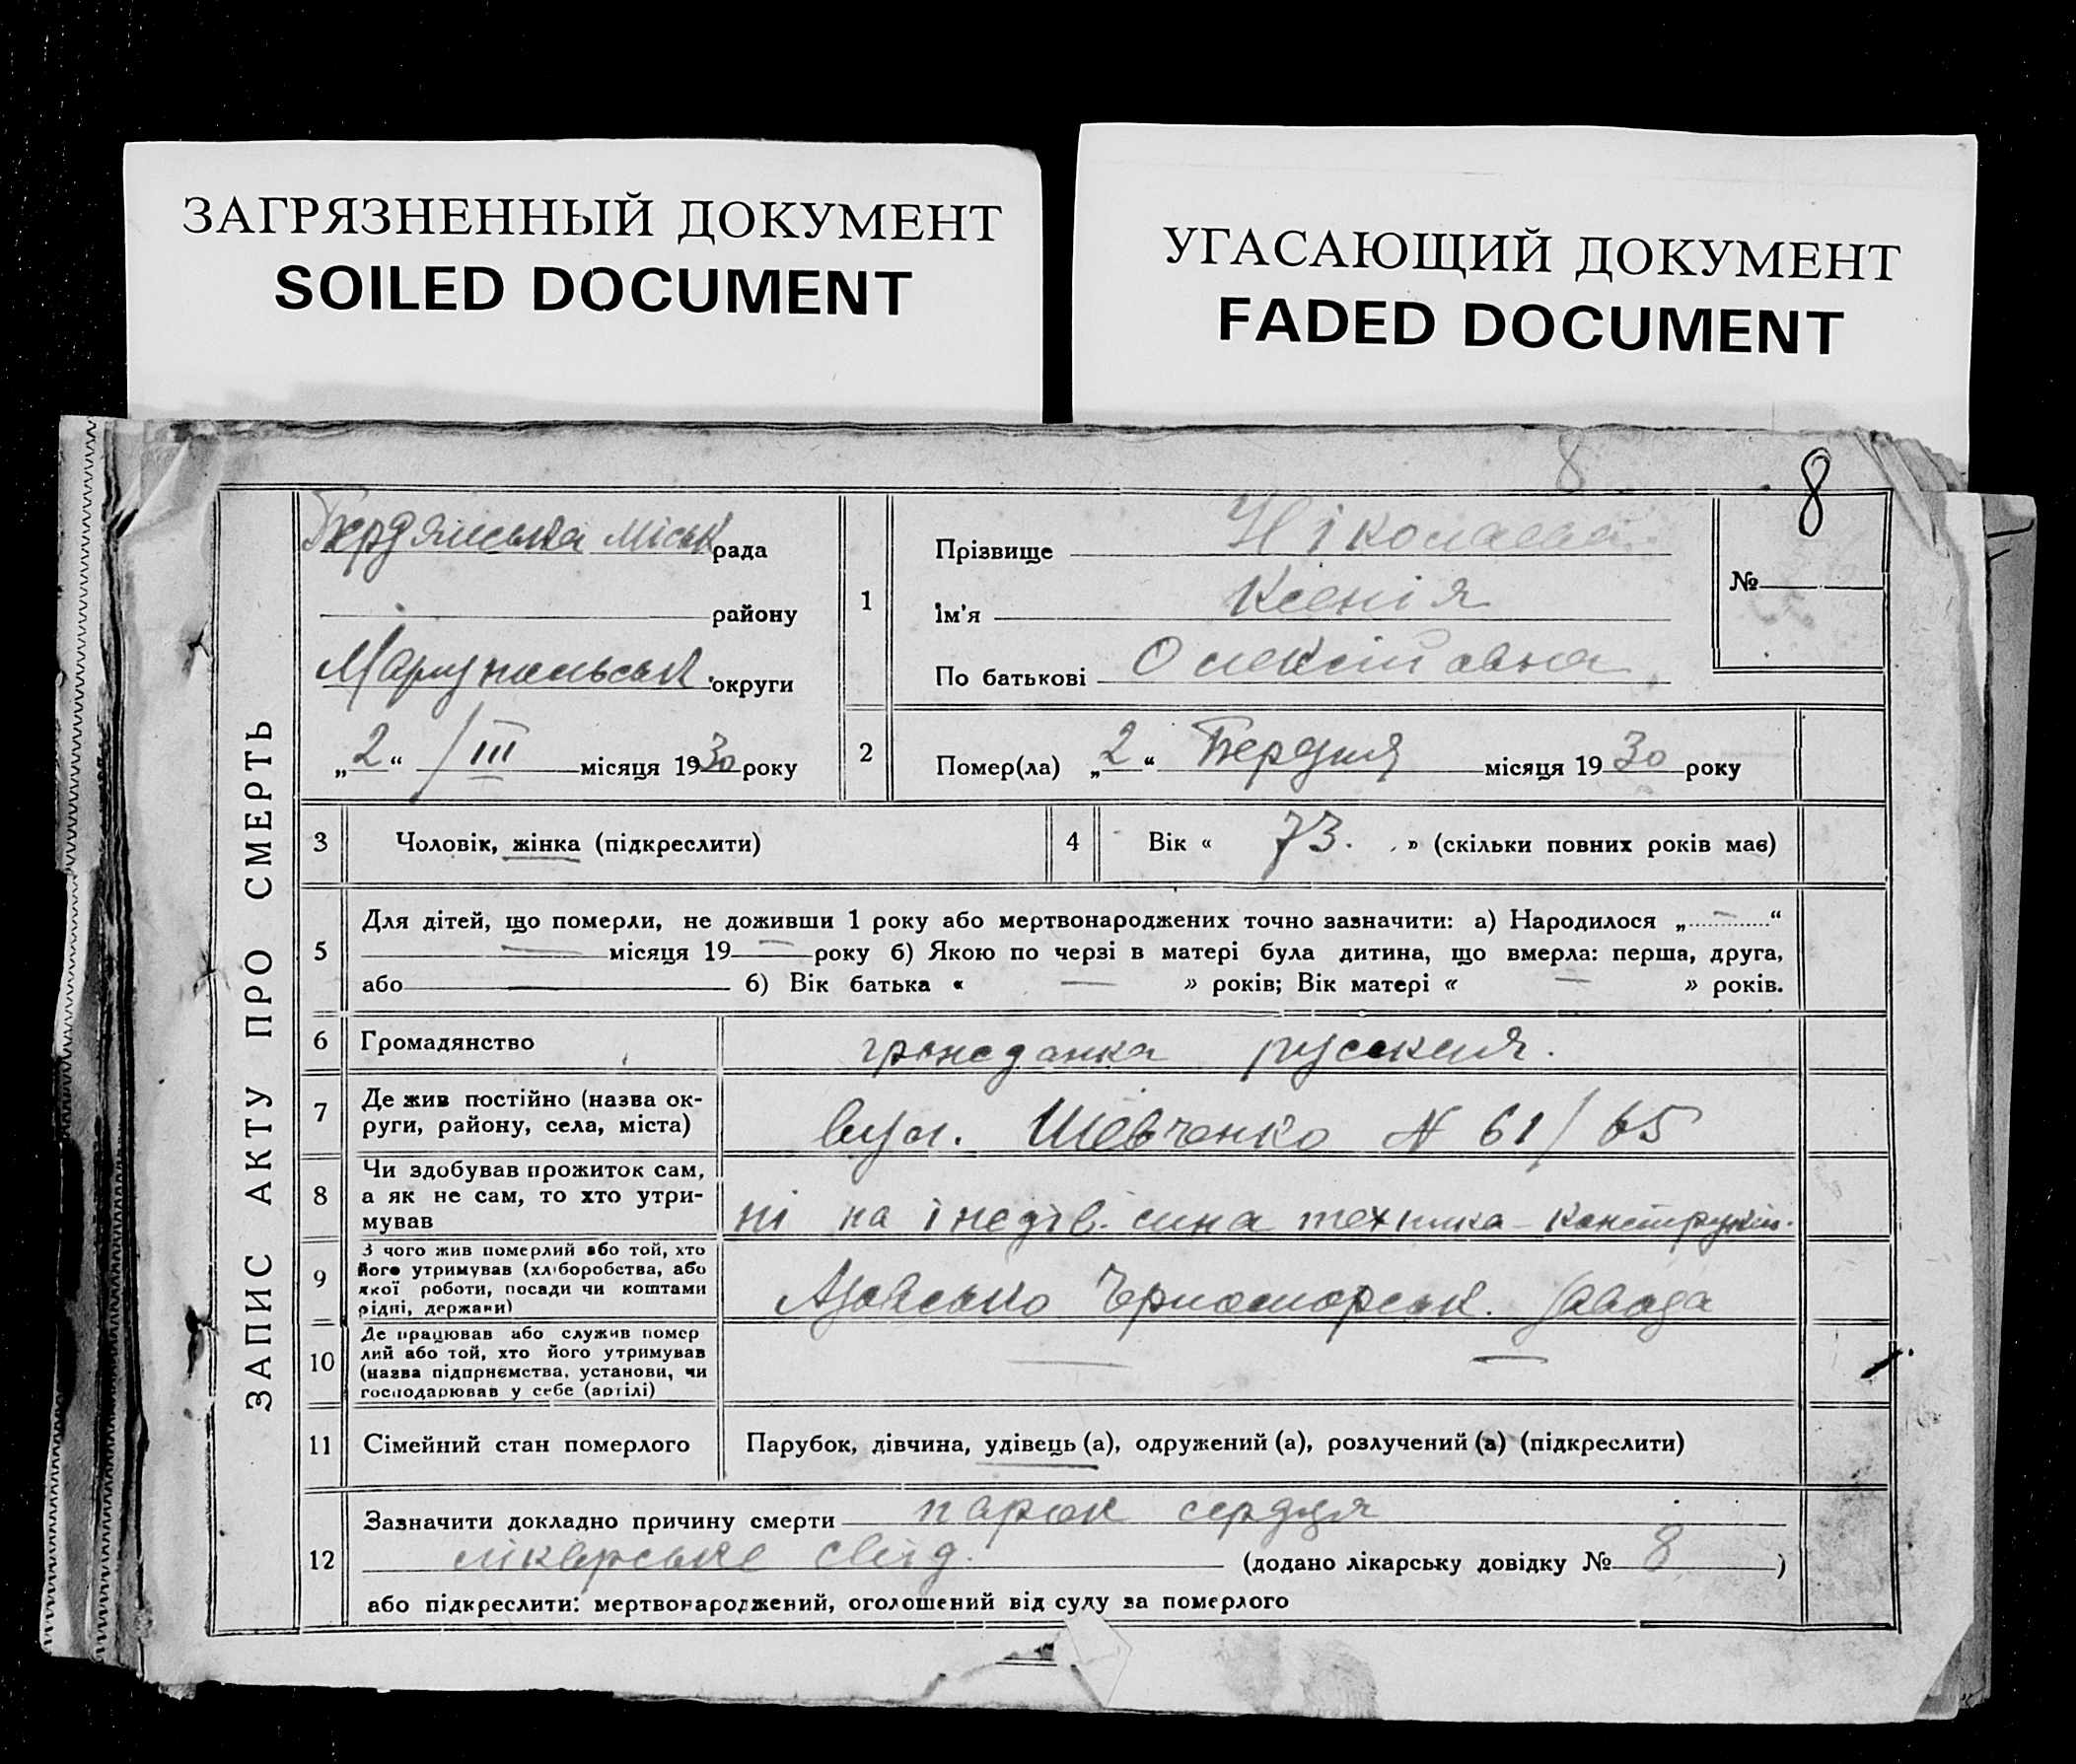 ЗАГРЯЗНЕННЫЙ ДОКУМЕНТ
SOILED DOCUMENT
УГАСАЮЩИЙ ДОКУМЕНТ
FADED DOCUMENT
8
8
ЗАПИС АКТУ ПРО СМЕРТЬ
Бердянська міськ рада
району
Маріупольськ. округи
„2“ / III місяця 1930 року
1
Прізвище Ніколаева
Ім'я Ксенія
По батькові Олексіївна
№
2
Помер(ла) „2“ Бердня місяця 1930 року
3 Чоловік, жінка (підкреслити)
4 Вік « 73. » (скільки повних років має)
5
Для дітей, що померли, не доживши 1 року або мертвонароджених точно зазначити: а) Народилося „ — “
— місяця 19 — року б) Якою по черзі в матері була дитина, що вмерла: перша, друга,
або — б) Вік батька « — » років; Вік матері « — » років.
6 Громадянство гронеданка русская.
7 Де жив постійно (назва ок-
руги, району, села, міста)
вул. Шевченко N 61/65
8 Чи здобував прожиток сам,
а як не сам, то хто утри-
мував
ні на інедів. сина техника-конструкт.
9 З чого жив померлий або той, хто
його утримував (хліборобства, або
якої роботи, посади чи коштами
рідні, держави)
Азовсько Чорноморськ. Завода
10 Де працював або служив помер
лий або той, хто його утримував
(назва підприємства, установи, чи
господарював у себе (артілі)
— —
11 Сімейний стан померлого
Парубок, дівчина, удівець (а), одружений (а), розлучений (а) (підкреслити)
12
Зазначити докладно причину смерти парок сердця
лікарське свід. (додано лікарську довідку № 8 )
або підкреслити: мертвонароджений, оголошений від суду за померлого